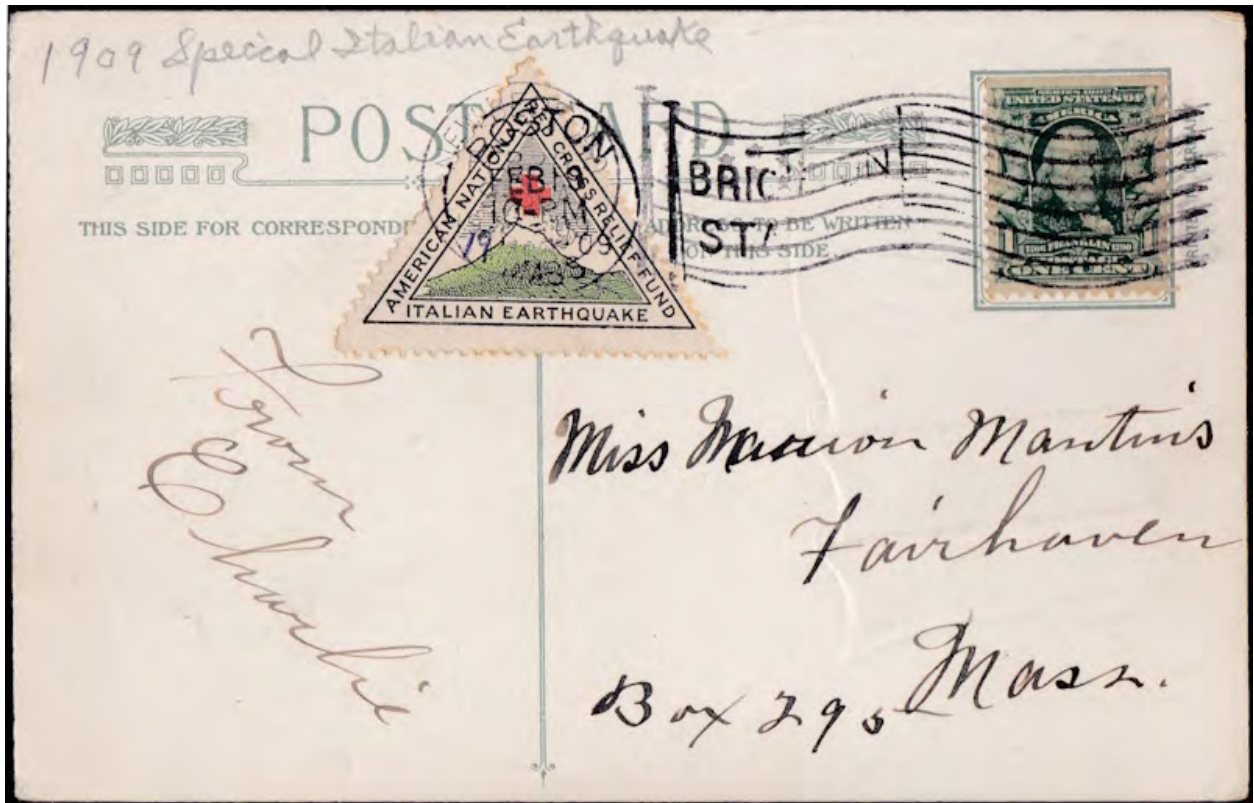 1909 Special Italian Earthquake
POST CARD
THIS SIDE FOR CORRESPONDE
ADDRESS TO BE WRITTEN
ON THIS SIDE
BOSTON
FEB
MASS
AMERICAN NATIONAL RED CROSS RELIEF FUND
ITALIAN EARTHQUAKE
19
STA
SERIES 1902
UNITED STATES OF
AMERICA
FRANKLIN
ONE CENT
From
Charlie
Miss Marion Mantius
Fairhaven
Mass.
Box 295